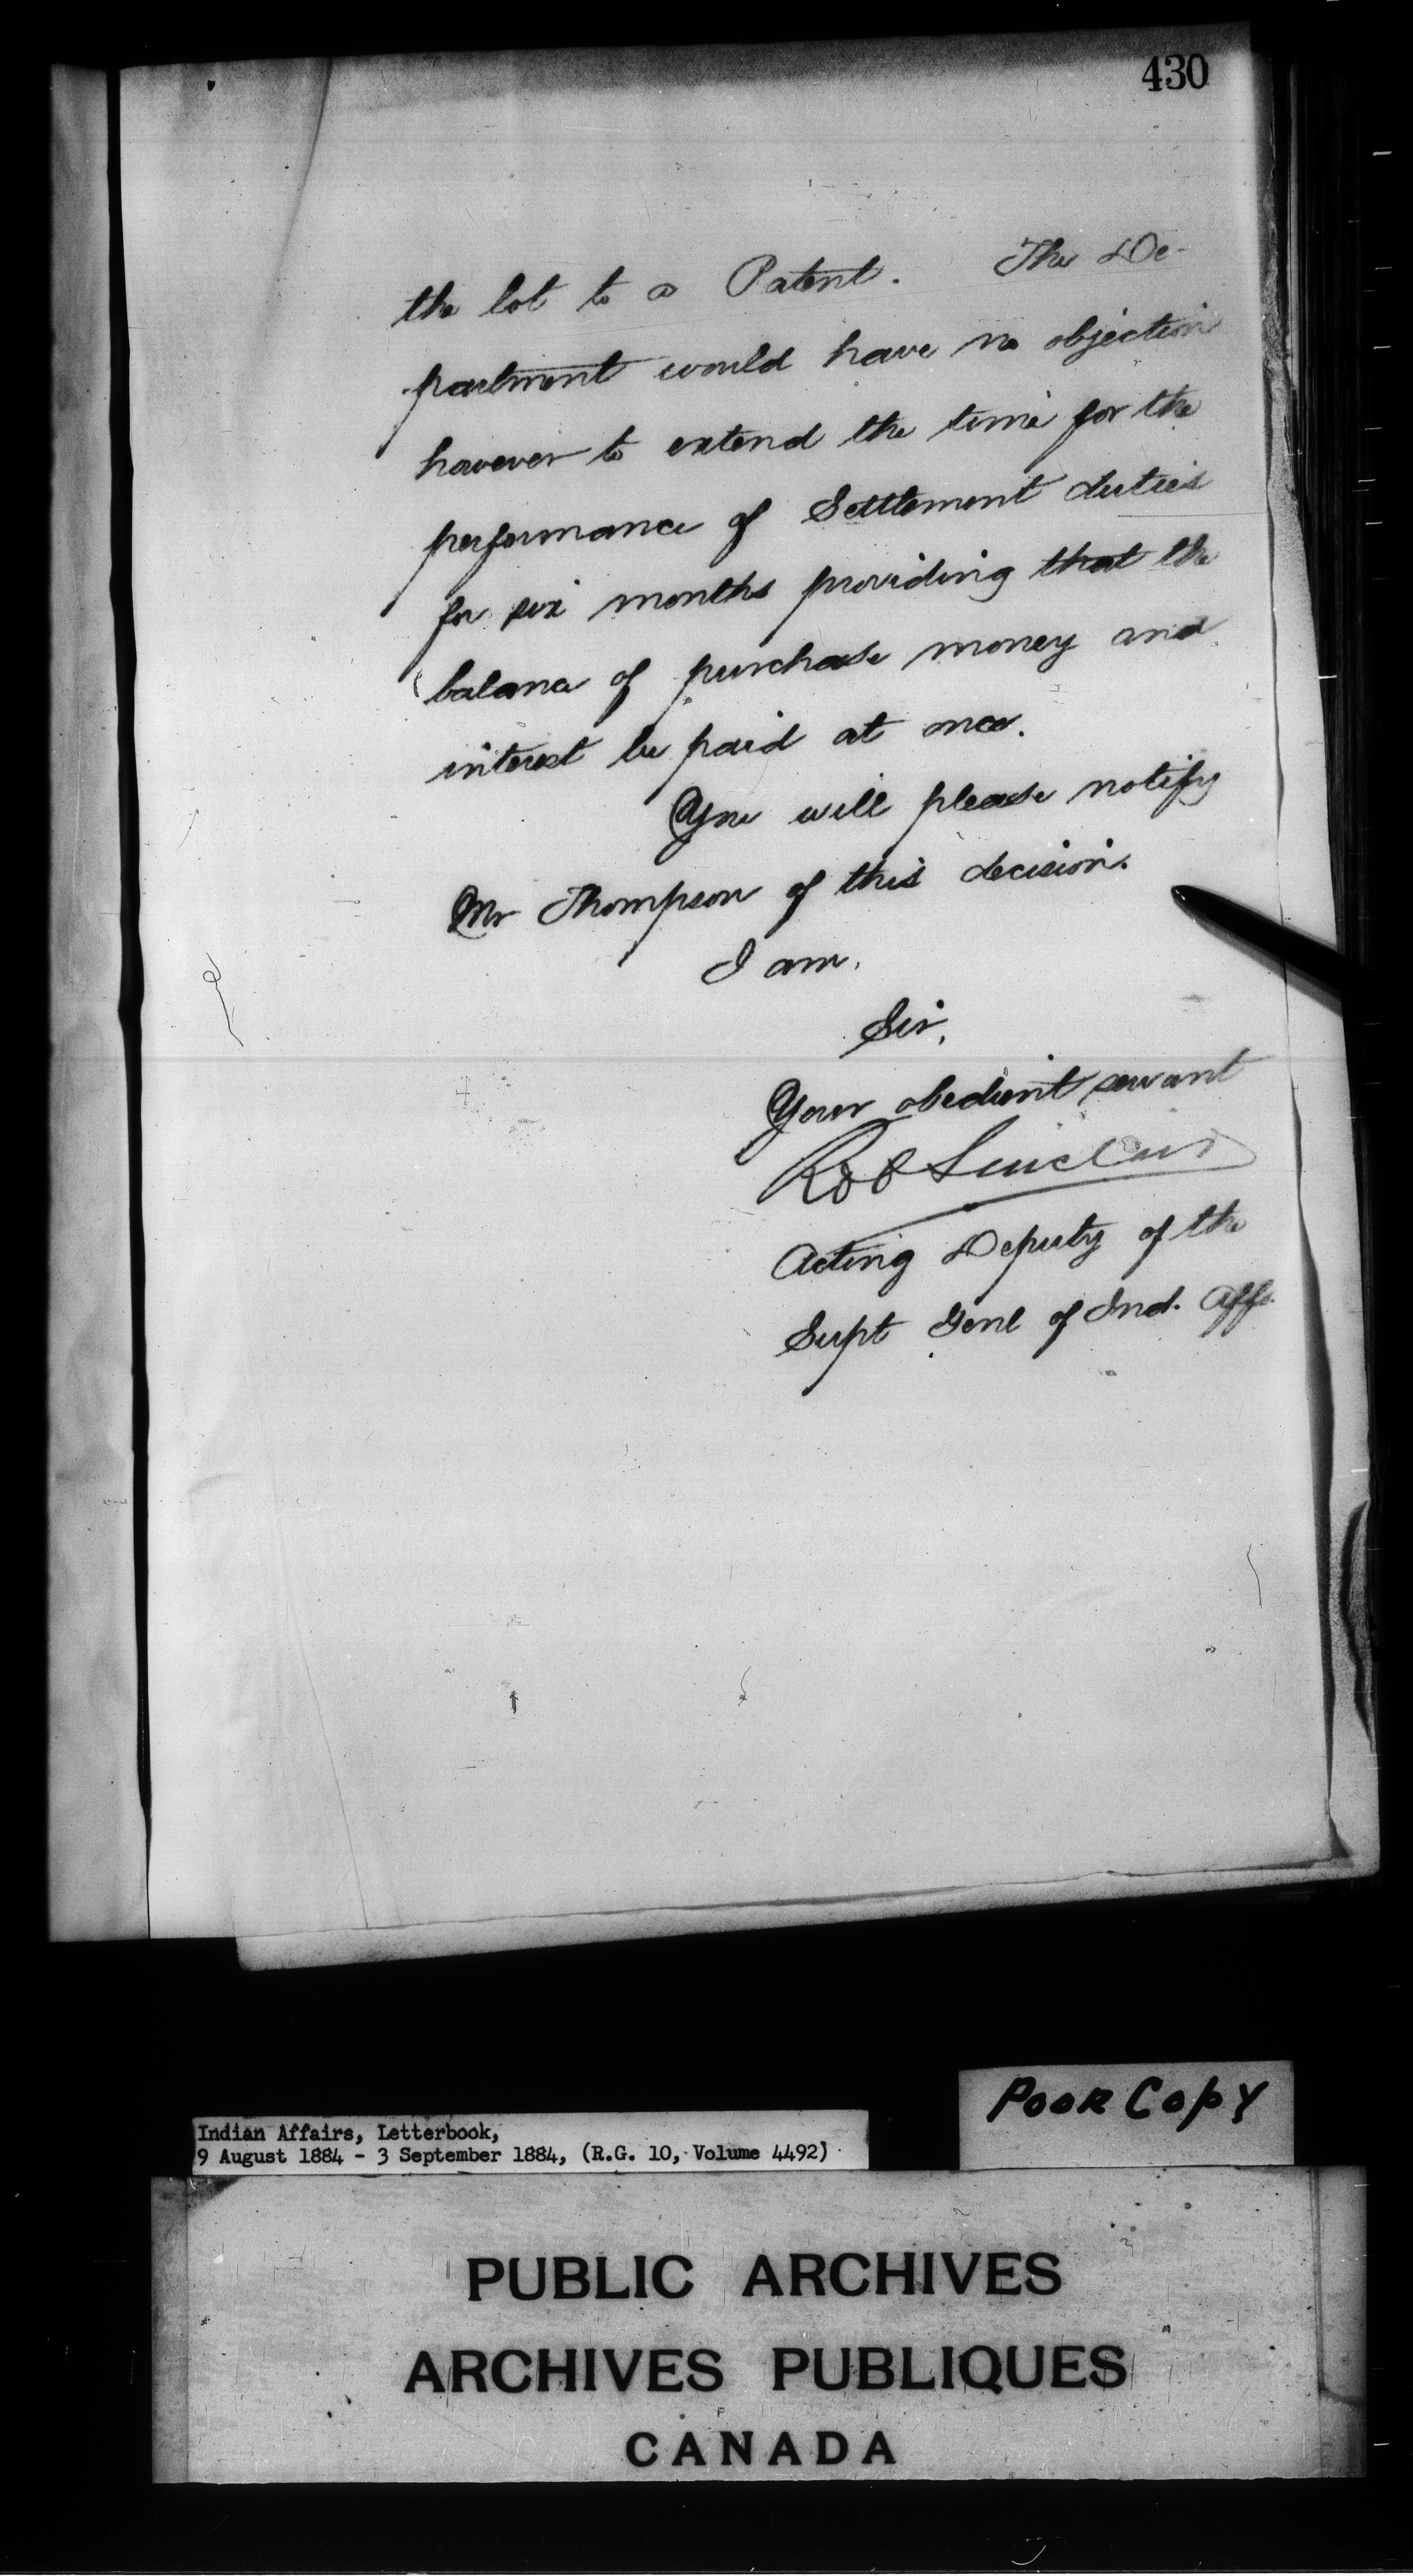 430
the lot to a Patent. The De-
partment would have no objection
however to extend the time for the
performance of Settlement duties
for six months providing that the
balance of purchase money and
interest be paid at once.
You will please notify
Mr Thompson of this decision.
I am,
Sir,
Your obedient servant
Rob Sinclair
Acting Deputy of the
Supt Genl of Ind. Affs.
Poor Copy
Indian Affairs, Letterbook,
9 August 1884 - 3 September 1884, (R.G. 10, Volume 4492)
PUBLIC ARCHIVES
ARCHIVES PUBLIQUES
CANADA